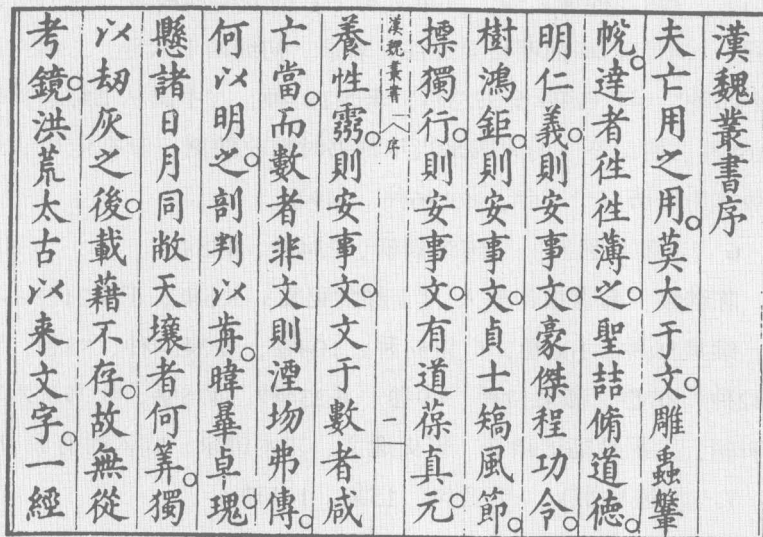 漢魏叢書序
夫亡用之用。莫大于文。雕蟲鞶
帨。達者徃徃薄之。聖喆脩道德。
明仁義。則安事文。豪傑程功令。
樹鴻鉅。則安事文。貞士犒風節。
摽獨行。則安事文。有道葆真元。
漢魏叢書 序 一
養性靈。則安事文。文于數者咸
亡當。而數者非文則湮坳弗傳。
何以明之。剖判以歬。暐畢卓瑰。
懸諸日月同敝天壤者何筭。獨
以刧灰之後。載藉不存。故無從
考鏡。洪荒太古以来文字。一經